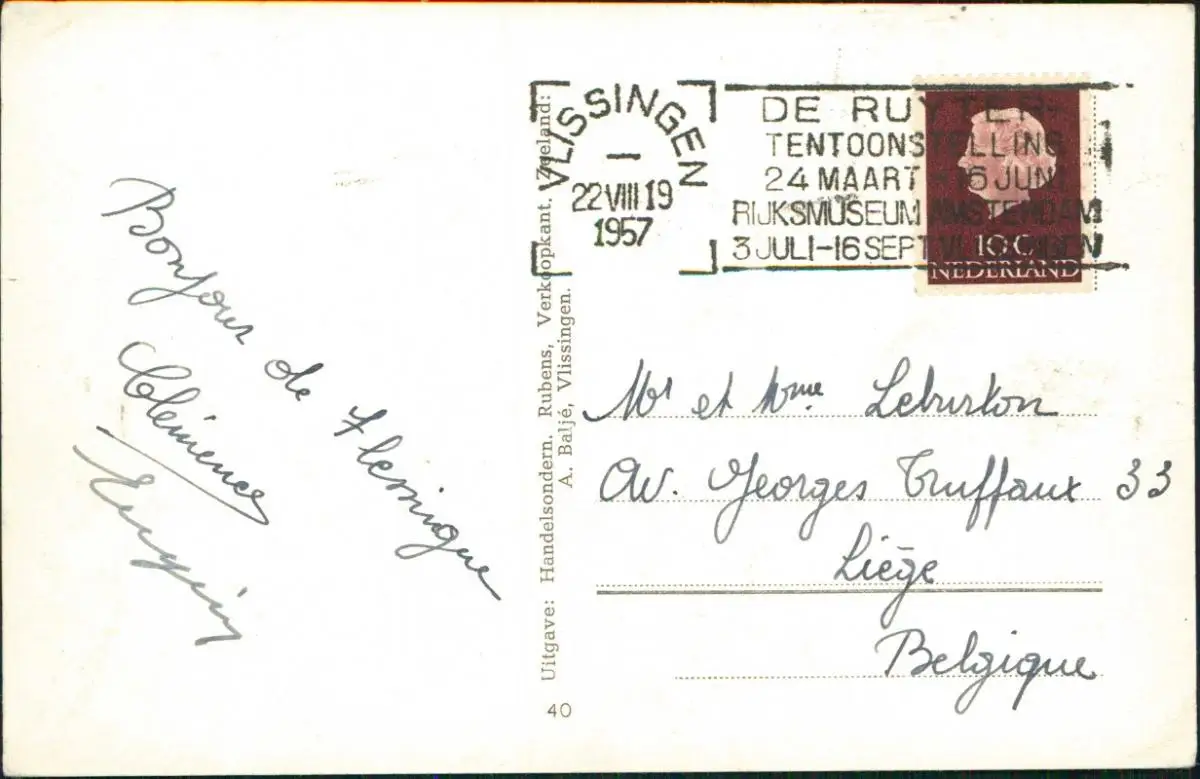 Bonjour de Flessingue
Clémence
Eugénie
Uitgave: Handelsondern. Rubens, Verkoopkant. Zeeland:
A. Baljé, Vlissingen.
40
VLISSINGEN
22 VIII 19
1957
DE RUYTER-
TENTOONSTELLING
24 MAART - 16 JUNI
RIJKSMUSEUM AMSTERDAM
3 JULI-16 SEPT VLISSINGEN
10 C
NEDERLAND
Mr et Mme Leburton
Av. Georges Truffaux 33
Liège
Belgique